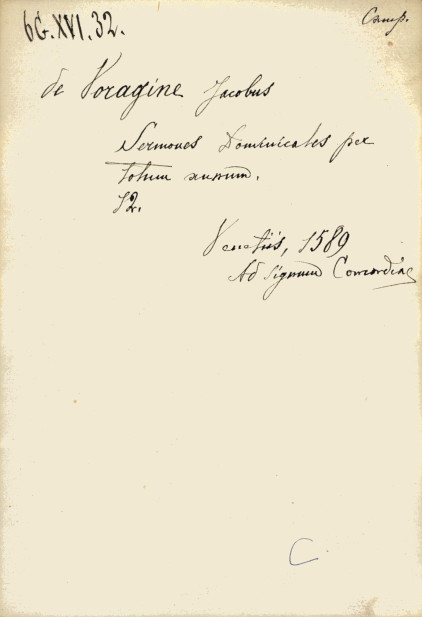 6G.XVI.32.
Camp.
de Voragine Jacobus
Sermones Dominicales per
totum annum.
12.
Venetiis, 1589
Ad signum Concordiae
C